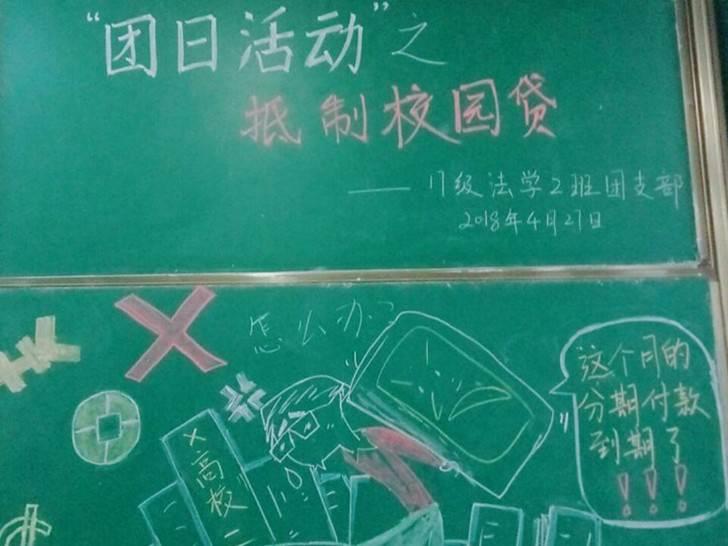 “团日活动”之
抵制校园贷
——17级法学2班团支部
2018年4月27日
怎么办?
这个月的
分期付款
到期了
!!!
X高校